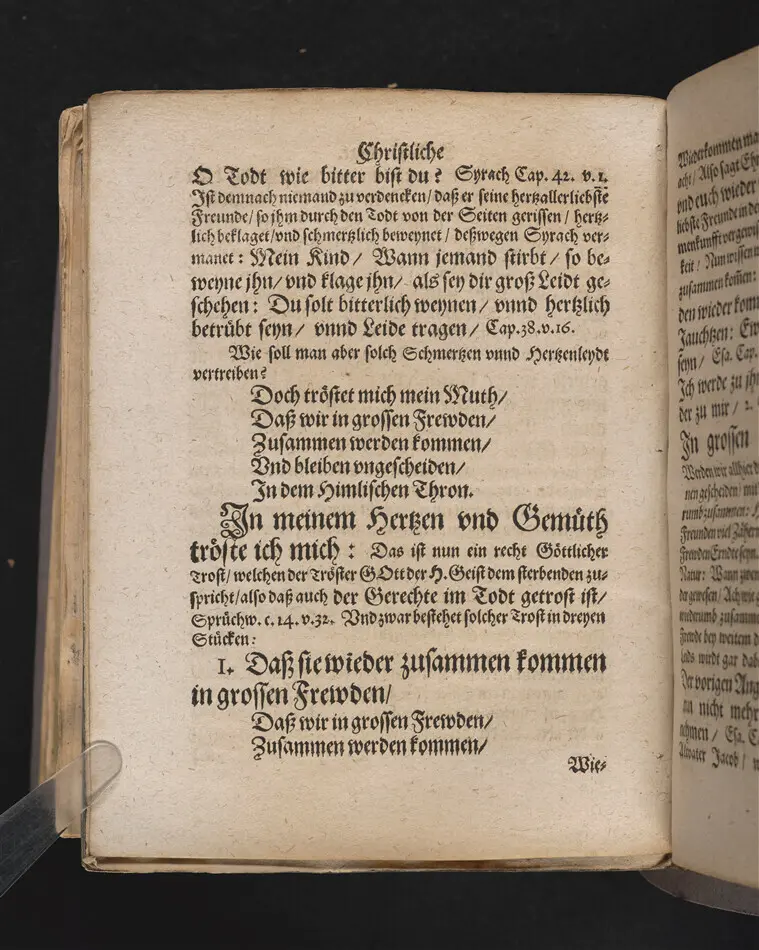 Christliche
O Todt wie bitter bist du? Syrach Cap. 42. v. 1.
Ist demnach niemand zu verdencken/ daß er seine hertzallerliebste
Freunde/ so jhm durch den Todt von der Seiten gerissen/ hertz-
lich beklaget/ vnd schmertzlich beweynet/ deßwegen Syrach ver-
manet: Mein Kind/ Wann jemand stirbt/ so be-
weyne jhn/ vnd klage jhn/ als sey dir groß Leidt ge-
schehen: Du solt bitterlich weynen/ vnnd hertzlich
betrübt seyn/ vnnd Leide tragen/ Cap. 38. v. 16.
Wie soll man aber solch Schmertzen vnnd Hertzenleydt
vertreiben?
Doch tröstet mich mein Muth/
Daß wir in grossen Frewden/
Zusammen werden kommen/
Vnd bleiben vngescheiden/
In dem Himlischen Thron.
In meinem Hertzen vnd Gemüth
tröste ich mich: Das ist nun ein recht Göttlicher
Trost/ welchen der Tröster GOtt der H. Geist dem sterbenden zu-
spricht/ also daß auch der Gerechte im Todt getrost ist/
Sprüchw. c. 14. v. 32. Vnd zwar bestehet solcher Trost in dreyen
Stücken:
1. Daß sie wieder zusammen kommen
in grossen Frewden/
Daß wir in grossen Frewden/
Zusammen werden kommen/
Wie-
Wiederkommen
acht/ Also sagt
vnd euch wieder
liebste Freunde in de
keit/ Nun wissen
zusammen kom̃en:
den wieder kom
Jauchtzen:
seyn/ Esa. Cap.
Ich werde zu jh
der zu mir/ 2.
In grossen
Werden wir allhier
nen gescheiden/ mit
rumb zusammen:
Freunden viel Zähren
Frewden Erndte seyn.
Natur: Wann
der gewesen/ Ach wie
widerumb zusamm
Frewde bey weitem
wirdt gar
Der vorigen Ang
nicht mehr
nehmen/ Esa.
Altvater Jacob/